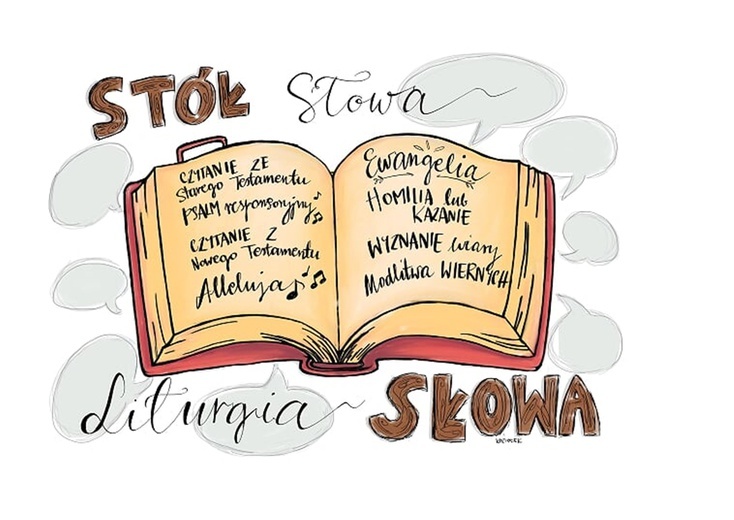 STÓŁ Słowa
CZYTANIE ZE
Starego Testamentu
PSALM responsoryjny
CZYTANIE Z
Nowego Testamentu
Alleluja
Ewangelia
HOMILIA lub
KAZANIE
WYZNANIE wiary
Modlitwa WIERNYCH
Liturgia SŁOWA